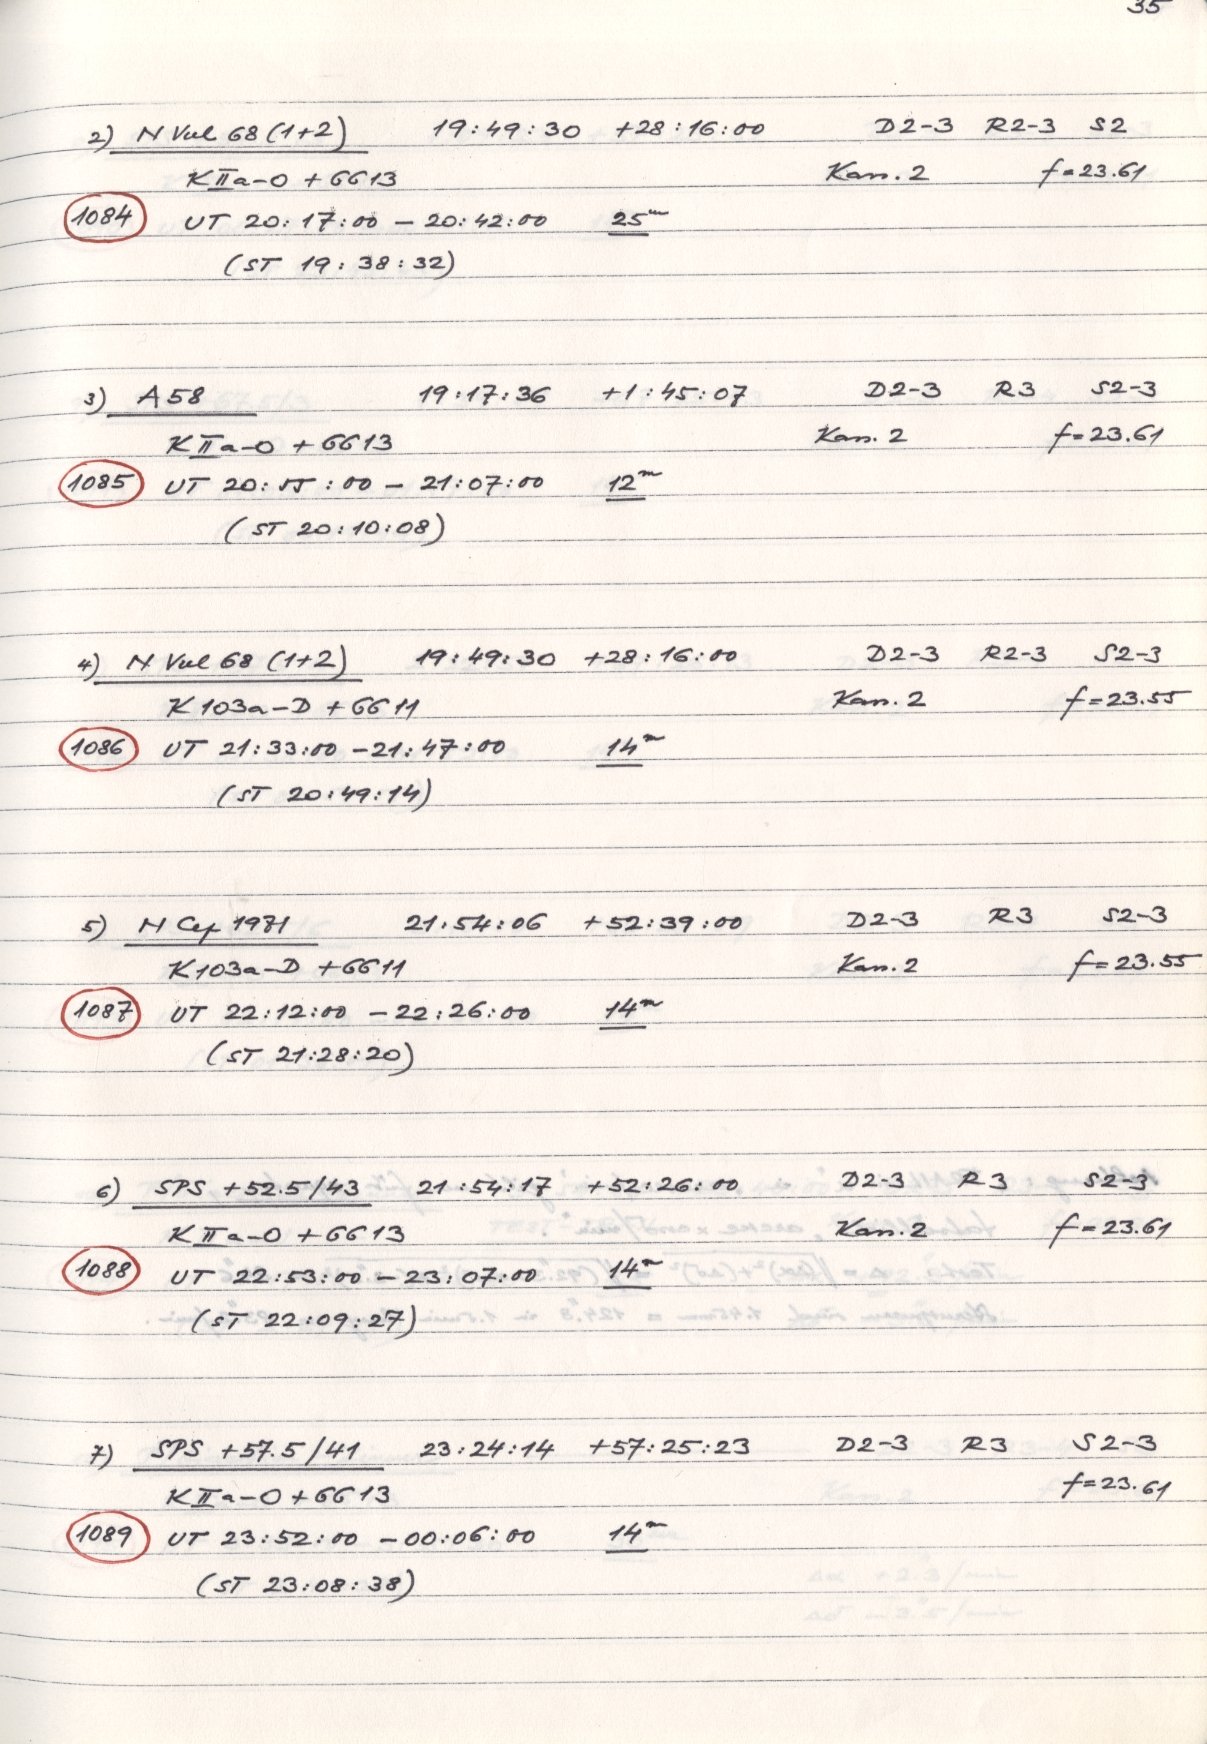 35
2) N Vul 68 (1+2) 19:49:30 +28:16:00 D2-3 R2-3 S2
KIIa-O + GG13 Kan. 2 f=23.61
1084 UT 20:17:00 - 20:42:00 25m
(ST 19:38:32)
3) A58 19:17:36 +1:45:07 D2-3 R3 S2-3
KIIa-O + GG13 Kan. 2 f=23.61
1085 UT 20:55:00 - 21:07:00 12m
(ST 20:10:08)
4) N Vul 68 (1+2) 19:49:30 +28:16:00 D2-3 R2-3 S2-3
K103a-D + GG11 Kan. 2 f=23.55
1086 UT 21:33:00 - 21:47:00 14m
(ST 20:49:14)
5) N Cep 1971 21:54:06 +52:39:00 D2-3 R3 S2-3
K103a-D + GG11 Kan. 2 f=23.55
1087 UT 22:12:00 - 22:26:00 14m
(ST 21:28:20)
6) SPS +52.5/43 21:54:17 +52:26:00 D2-3 R3 S2-3
KIIa-O + GG13 Kan. 2 f=23.61
1088 UT 22:53:00 - 23:07:00 14m
(ST 22:09:27)
7) SPS +57.5/41 23:24:14 +57:25:23 D2-3 R3 S2-3
KIIa-O + GG13 f=23.61
1089 UT 23:52:00 - 00:06:00 14m
(ST 23:08:38)